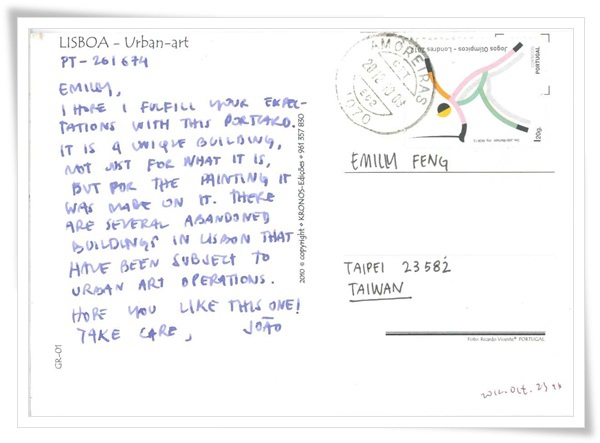 LISBOA - Urban-art
PT-261674
EMILY,
I HOPE I FULFILL YOUR EXPEC-
TATIONS WITH THIS POSTCARD.
IT IS A UNIQUE BUILDING,
NOT JUST FOR WHAT IT IS,
BUT FOR THE PAINTING IT
WAS MADE ON IT. THERE
ARE SEVERAL ABANDONED
BUILDINGS IN LISBON THAT
HAVE BEEN SUBJECT TO
URBAN ART OPERATIONS.
HOPE YOU LIKE THIS ONE!
TAKE CARE,
JOÃO
GR-01
2010 © copyright • KRONOS-Edições • 961 357 830
AMOREIRAS
CTT
1070
Jogos Olímpicos - Londres
PORTUGAL
I20g
EMILY FENG
TAIPEI 23582
TAIWAN
Foto: Ricardo Vicente® PORTUGAL